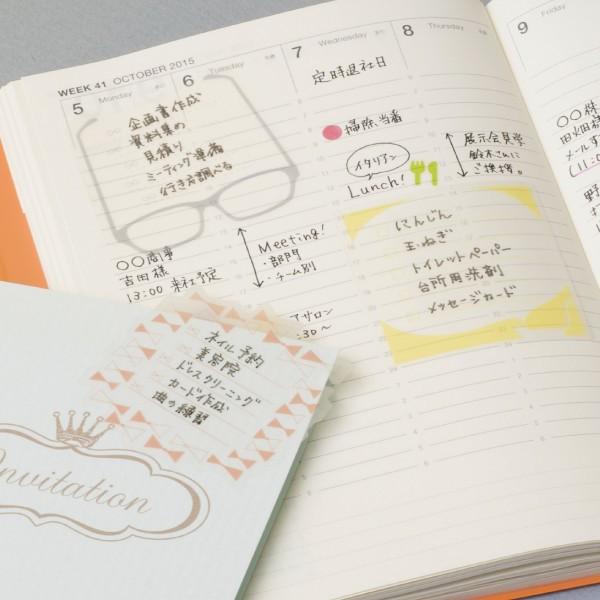 WEEK 41 OCTOBER 2015
5 Monday
6 Tuesday
7 Wednesday
8 Thursday
9 Friday
企画書作成
資料集め
見積り
ミーティング準備
行き方調べる
〇〇商事
吉田様
13:00 来社予定
Meeting!
・部門
・チーム別
アサロン
:30~
定時退社日
掃除当番
イタリアン
Lunch!
展示会見学
鈴木さんに
ご挨拶。
にんじん
玉ねぎ
トイレットペーパー
台所用洗剤
メッセージカード
〇〇株
田畑様
メールす
(11:0
ネイル予約
美容院
ドレスクリーニング
カード作成
曲の練習
Invitation